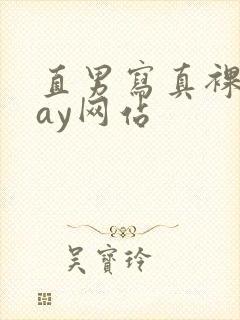 直男寫真裸
ay网佔
吴寶玲